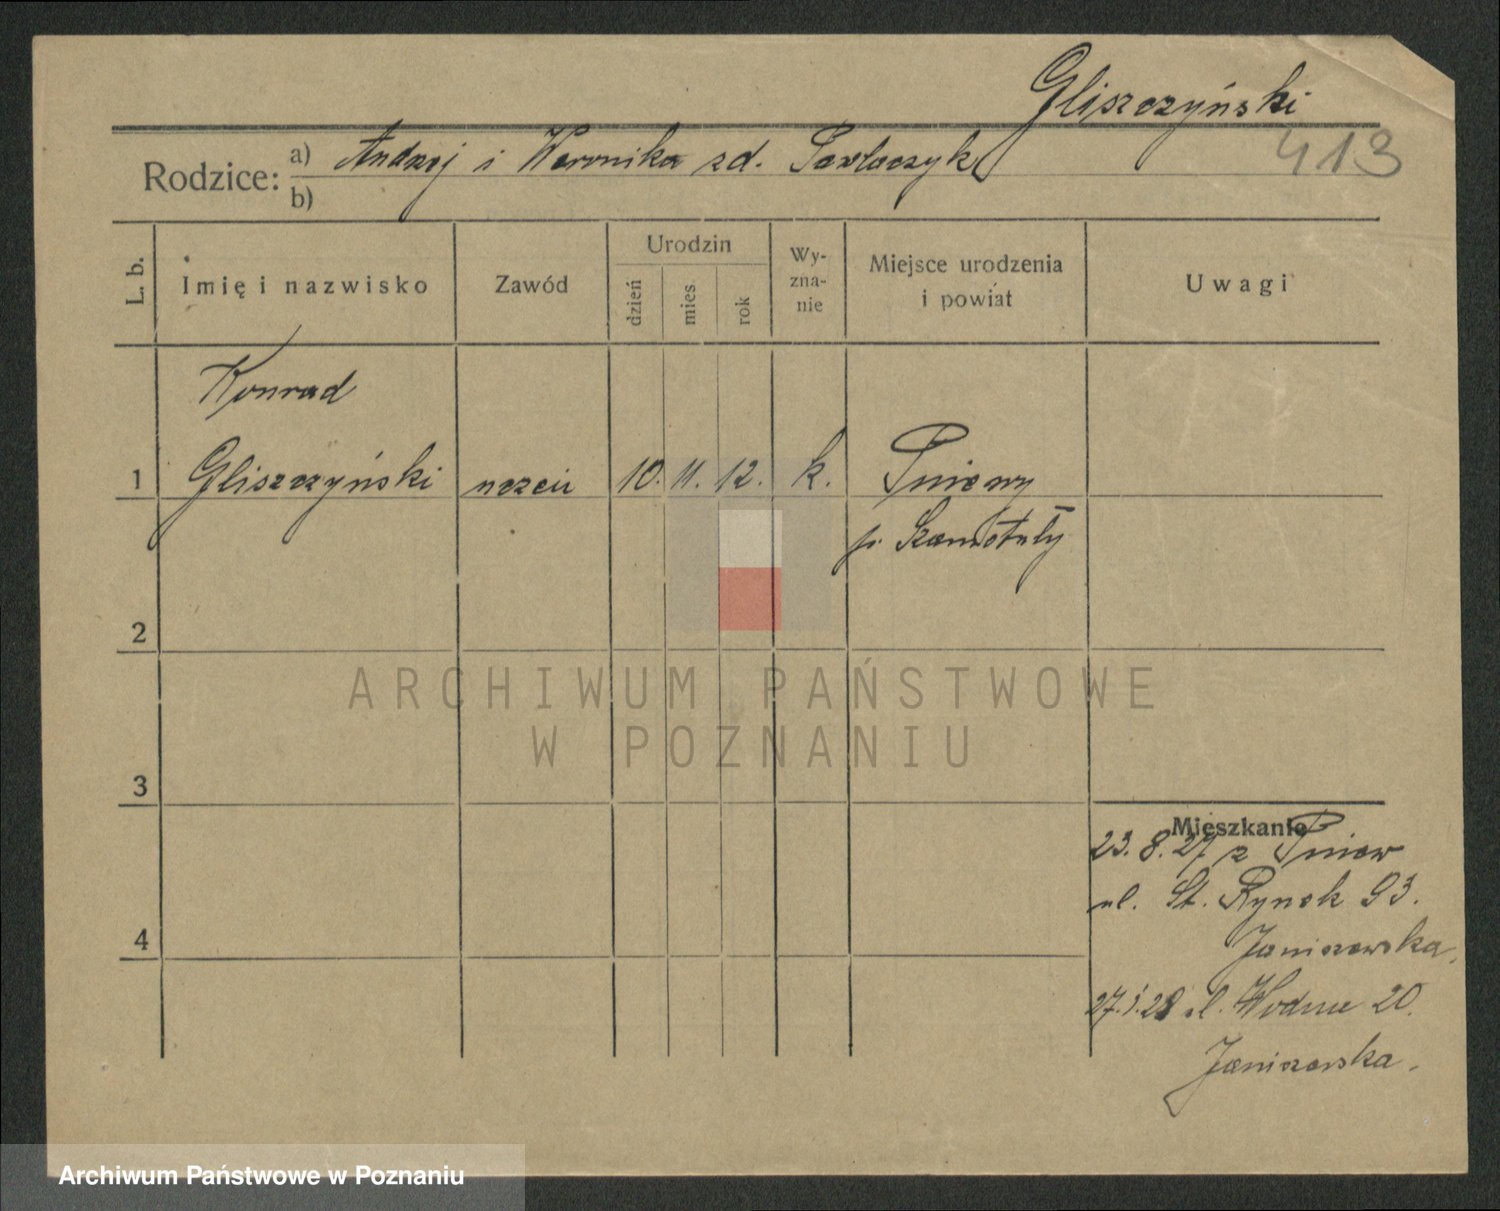 Gliszczyński
413
Rodzice: a) Andrzej i Weronika zd. Pawlaczyk
b)
L. b. Imię i nazwisko Zawód Urodzin dzień mies rok Wyznanie Miejsce urodzenia i powiat Uwagi
Konrad
1 Gliszczyński uczeń 10. 11. 12. k. Pniewy
p. Szamotuły
2
ARCHIWUM PAŃSTWOWE
W POZNANIU
3
Mieszkanie
23. 8. 27 z Pniew
ul. St. Rynek 93.
Janiszewska.
4
27.1.28 ul. Wodna 20.
Janiszewska.
Archiwum Państwowe w Poznaniu